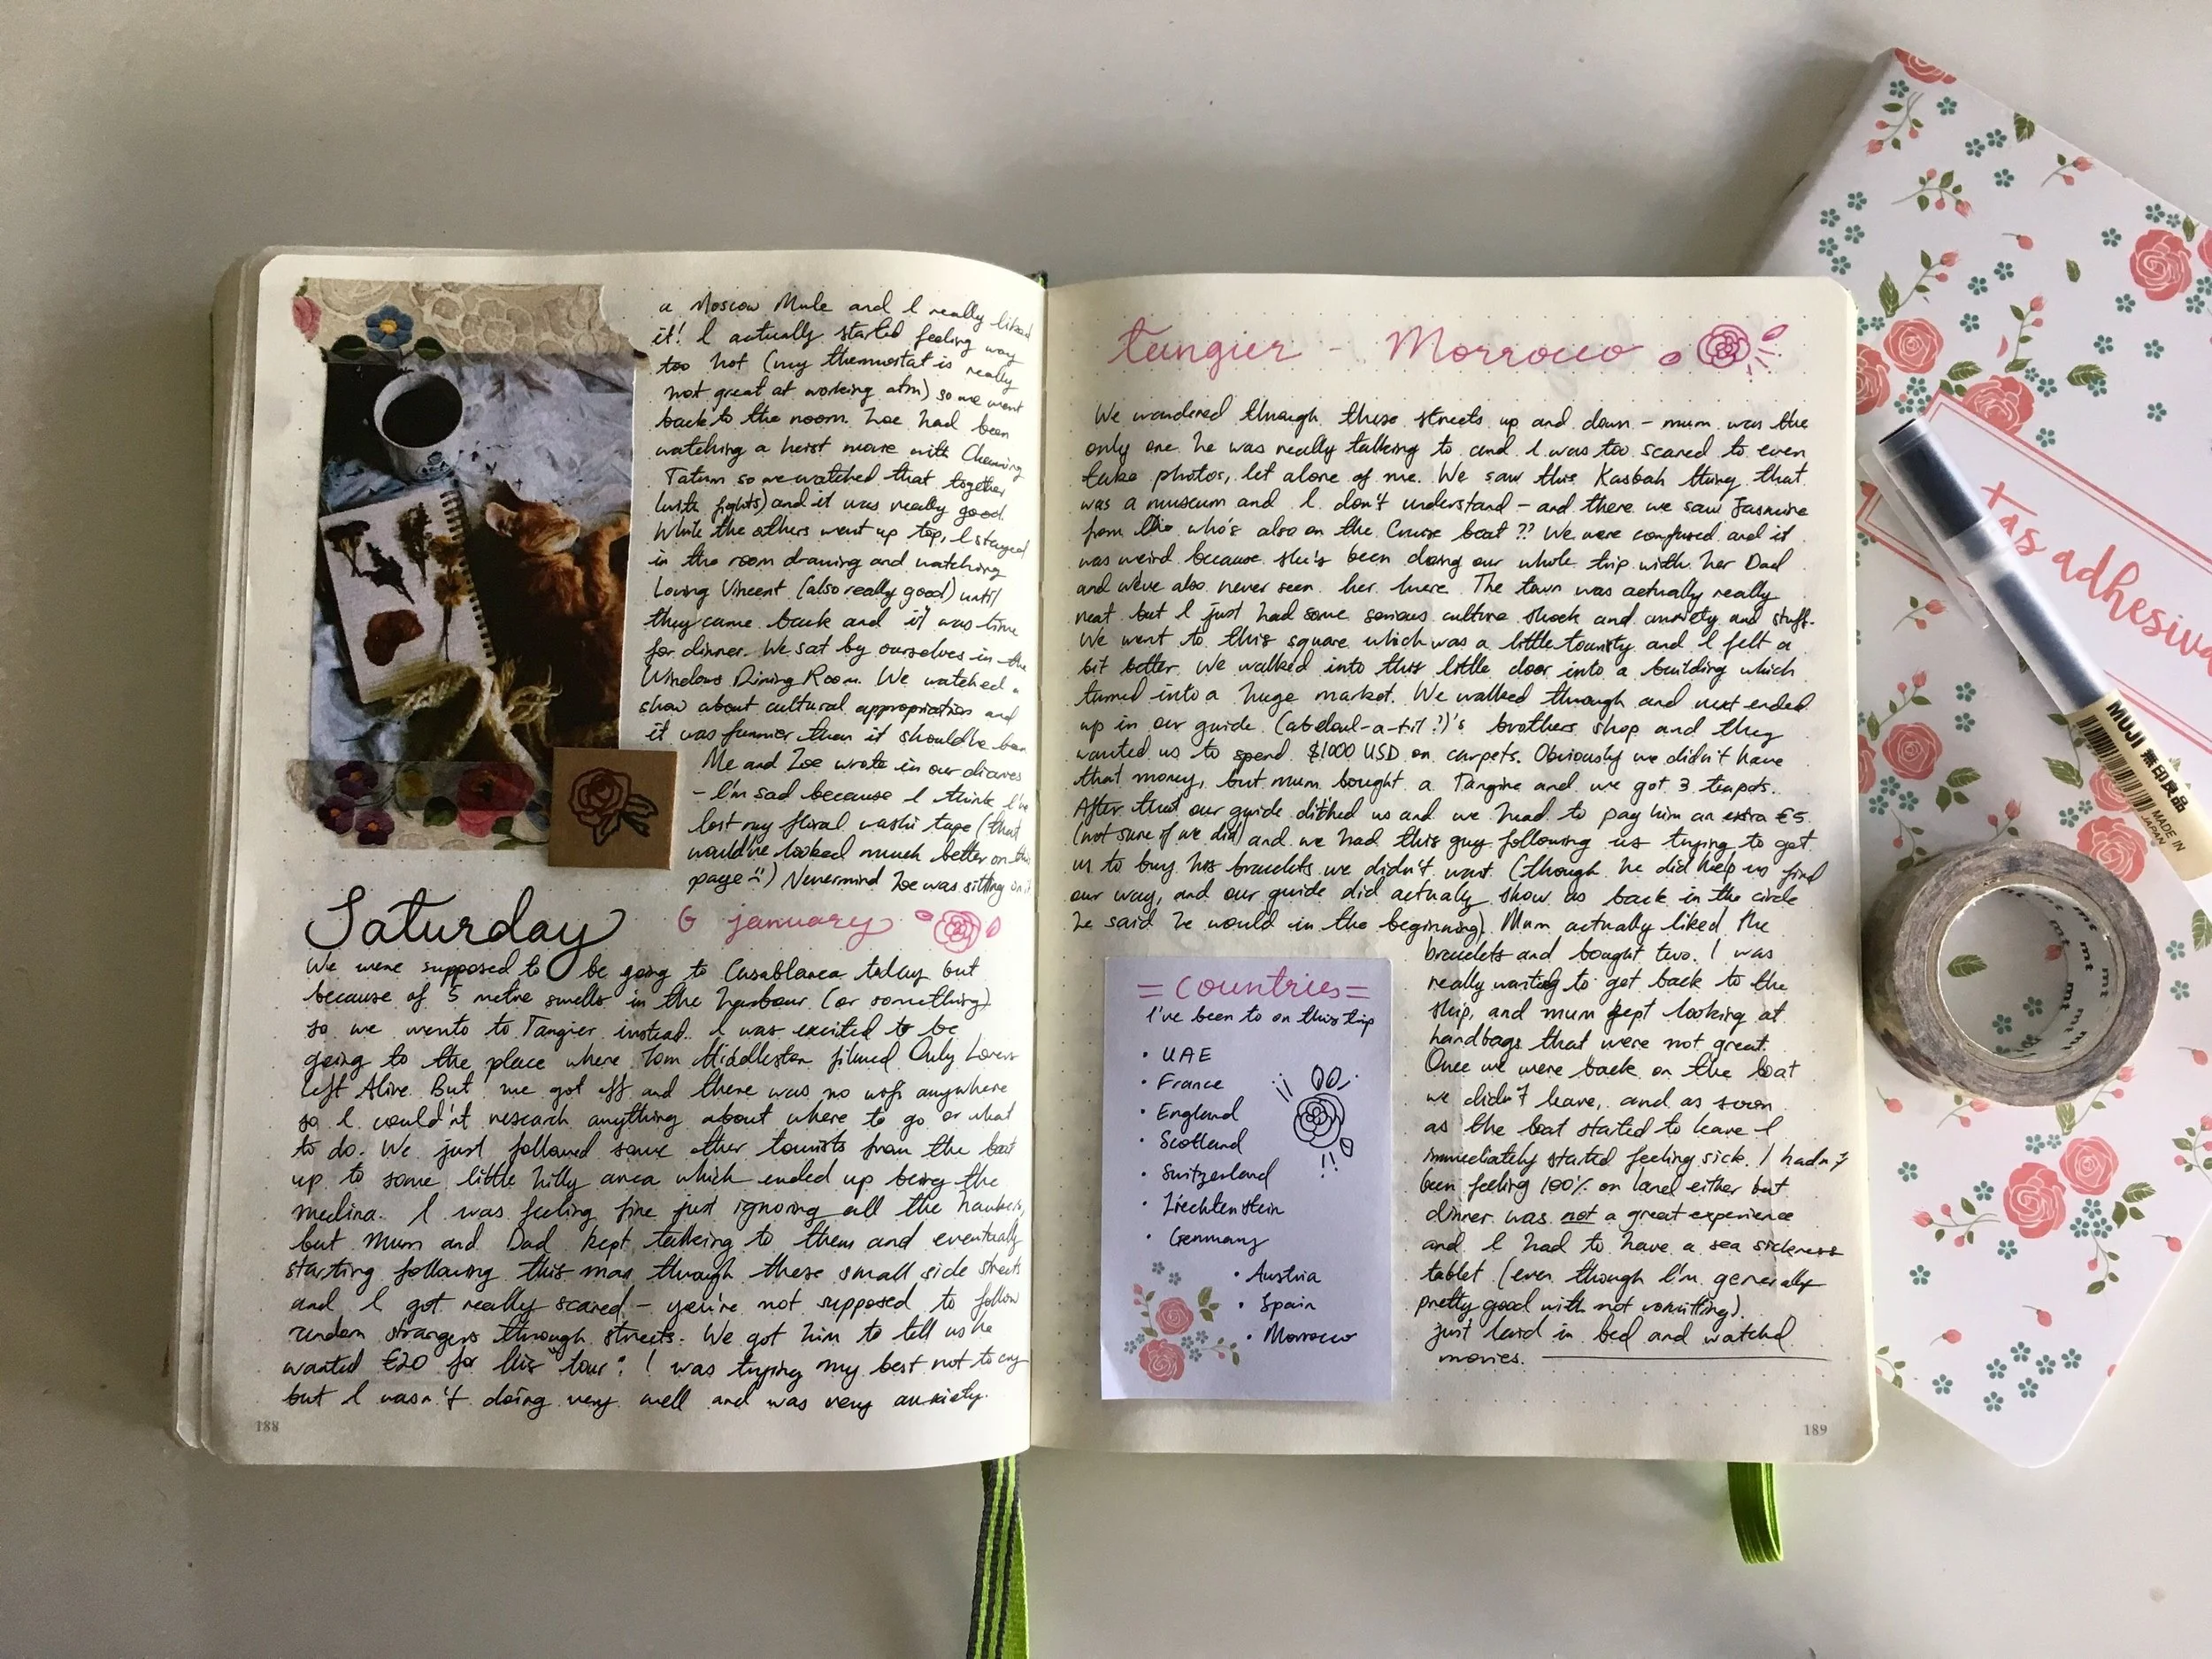 a Moscow Mule and I really liked
it! I actually started feeling way
too hot (my thermostat is really
not great at working atm) so we went
back to the room. Zoe had been
watching a heist movie with Channing
Tatum so we watched that together
(with fights) and it was really good.
While the others went up top, I stayed
in the room drawing and watching
Loving Vincent (also really good) until
they came back and it was time
for dinner. We sat by ourselves in the
Windows Dining Room. We watched a
show about cultural appropriation and
it was funnier than it should've been
Me and Zoe wrote in our diaries
- I'm sad because I think I've
lost my floral washi tape (that
would've looked much better on this
page :() Nevermind Zoe was sitting on it
Saturday 6 january
We were supposed to be going to Casablanca today but
because of 5 metre smells in the harbour (or something)
so we wento to Tangier instead. I was excited to be
going to the place where Tom Hiddleston filmed Only Lovers
Left Alive. But we got off and there was no wifi anywhere
so I could'nt research anything about where to go or what
to do. We just followed some other tourists from the boat
up to some little hilly area which ended up being the
medina. I was feeling fine just ignoring all the hawkers,
but Mum and Dad kept talking to them and eventually
starting following this man through these small side streets
and I got really scared - you're not supposed to follow
random strangers through streets. We got him to tell us he
wanted €20 for his "tour". I was trying my best not to cry
but I wasn't doing very well and was very anxiety.
188
tangier - Morrocco
We wandered through these streets up and down - mum was the
only one he was really talking to and I was too scared to even
take photos, let alone of me. We saw this Kasbah thing that
was a museum and I don't understand - and there we saw Jasmine
from who's also on the Cruise boat ?? We were confused and it
was weird because she's been doing our whole trip with her Dad
and we've also never seen her there. The town was actually really
neat but I just had some serious culture shock and anxiety and stuff.
We went to this square which was a little touristy and I felt a
bit better. We walked into this little door into a building which
turned into a huge market. We walked through and next ended
up in our guide (abdoul-a-til?)'s brothers shop and they
wanted us to spend $1000 USD on carpets. Obviously we didn't have
that money, but mum bought a Tangine and we got 3 teapots.
After that our guide ditched us and we had to pay him an extra €5
(not sure if we did) and we had this guy following us trying to get
us to buy his bracelets we didn't want. (though he did help us find
our way, and our guide did actually show us back in the circle
he said he would in the beginning). Mum actually liked the
bracelets and bought two. I was
really wanting to get back to the
ship, and mum kept looking at
handbags that were not great.
Once we were back on the boat
we didn't leave, and as soon
as the boat started to leave I
immediately started feeling sick. I hadn't
been feeling 100% on land either but
dinner was not a great experience
and I had to have a sea sickness
tablet (even though I'm generally
pretty good with not vomitting).
just laid in bed and watched
movies.
= countries =
I've been to on this trip
• UAE
• France
• England
• Scotland
• Switzerland
• Liechtenstein
• Germany
• Austria
• Spain
• Morrocco
189
tas adhesivas
MUJI 無印良品
MADE IN
JAPAN
mt mt mt mt